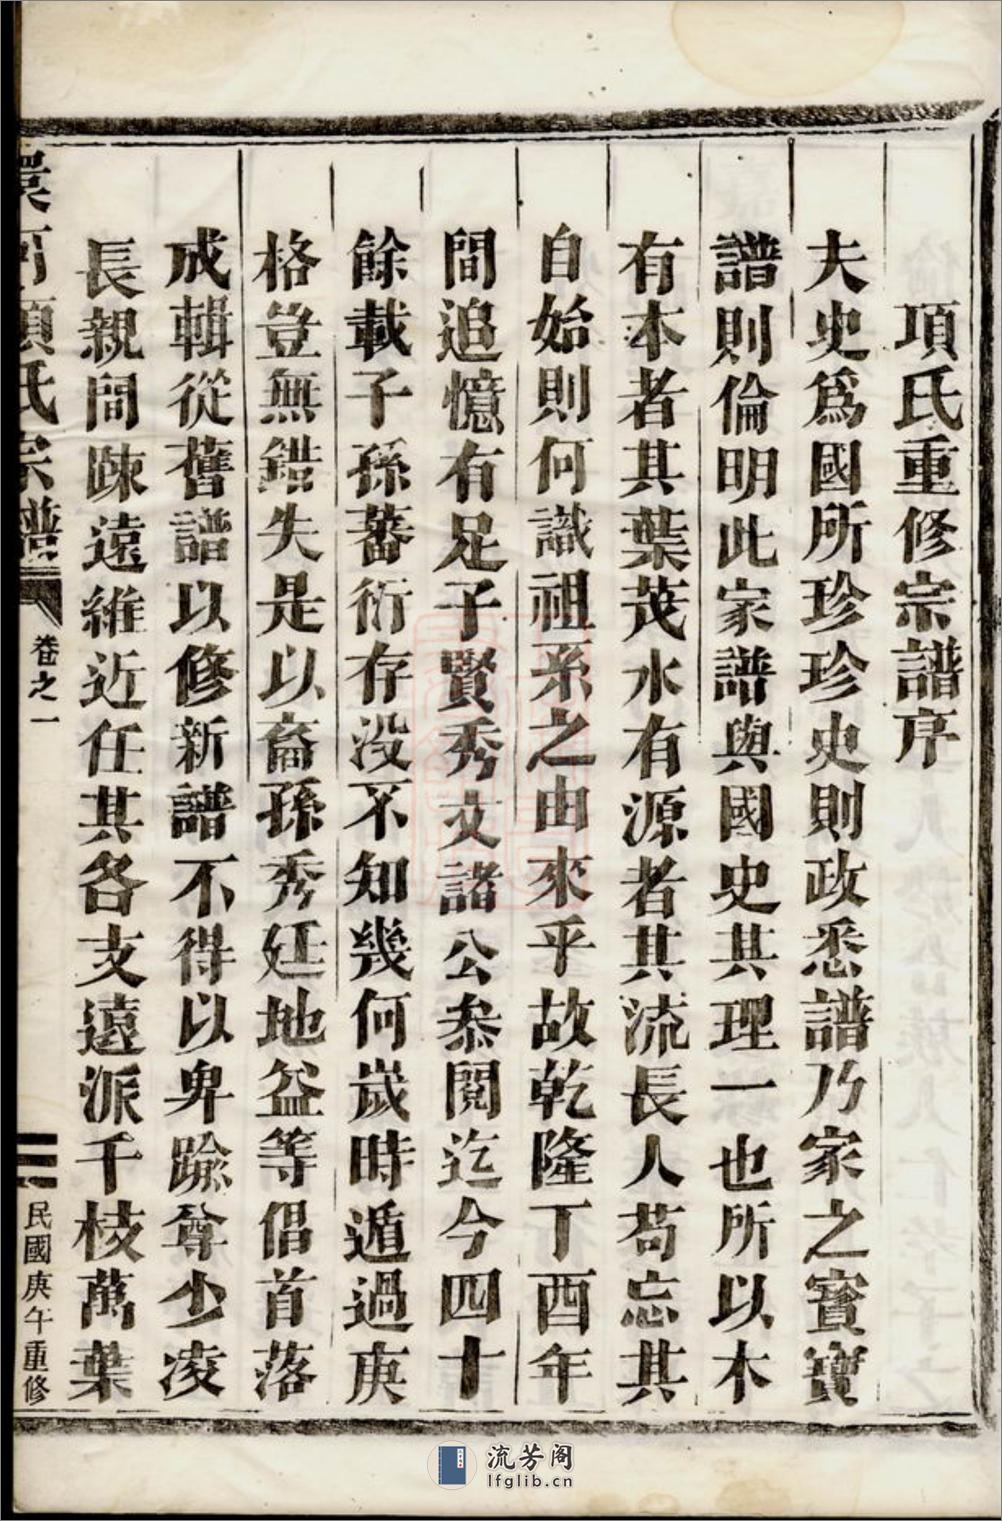 項氏重修宗譜序
夫史爲國所珍珍史則政悉譜乃家之寳寳
譜則倫明此家譜與國史其理一也所以木
有本者其葉茂水有源者其流長人苟忘其
自始則何識祖系之由來乎故乾隆丁酉年
間追憶有足子賢秀文諸公叅閱迄今四十
餘載子孫蕃衍存没不知幾何歲時遁過庚
格豈無錯失是以裔孫秀廷地益等倡首落
成輯從舊譜以修新譜不得以卑踰尊少凌
長親間踈遠維近任其各支遠派千枝萬葉
項氏宗譜
卷之一
民國庚午重修
流芳阁
lfglib.cn